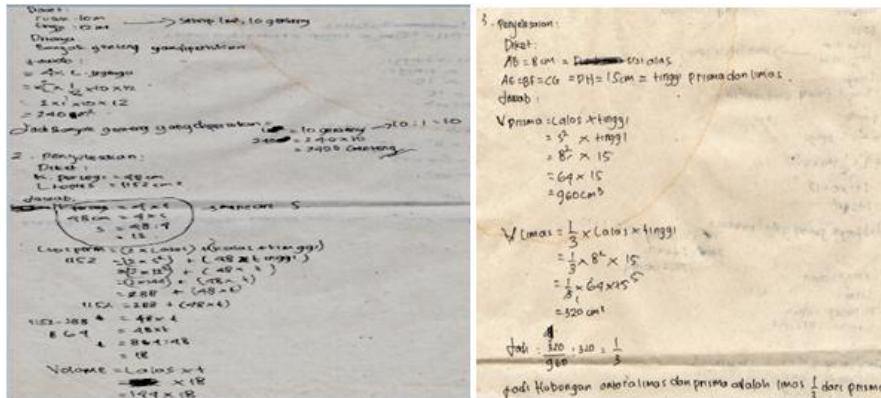 Diket:
rusuk = 10 m
tinggi = 12 m → setiap 1 m², 10 genteng
Ditanya:
Banyak genteng yang diperlukan
Jawab:
= 4 × L. segitiga
= 4 × 1/2 × 10 × 12
= 2 × 10 × 12
= 240 m²
Jadi banyak genteng yang diperlukan =
1 = 10 genteng → 10 : 1 = 10
240 = 240 × 10
= 2400 genteng
2. Penyelesaian:
Diket:
K. persegi = 48 cm
L = 1152 cm²
Jawab:
= 4 × s → mencari S
48 cm = 4 × s
s = 48 : 4
= 12
L = (2 × Lalas) + (K alas × tinggi)
1152 = (2 × s²) + (48 × tinggi)
= (2 × 12²) + (48 × t)
= (2 × 144) + (48 × t)
= 288 + (48 × t)
1152 = 288 + (48 × t)
1152 - 288 = 48 × t
864 = 48 × t
t = 864 : 48
= 18
Volume = Lalas × t
× 18
= 144 × 18
3. Penyelesaian:
Diket:
AB = 8 cm = sisi alas
AE = BF = CG = DH = 15 cm = tinggi prisma dan limas.
Jawab:
V prisma = Lalas × tinggi
= s² × tinggi
= 8² × 15
= 64 × 15
= 960 cm³
V limas = 1/3 × Lalas × tinggi
= 1/3 × 8² × 15
= 1/3 × 64 × 15 5
= 320 cm³
Jadi = 320/960 : 320 = 1/3
Jadi Hubongan antara limas dan prisma adalah limas 1/3 dari prisma